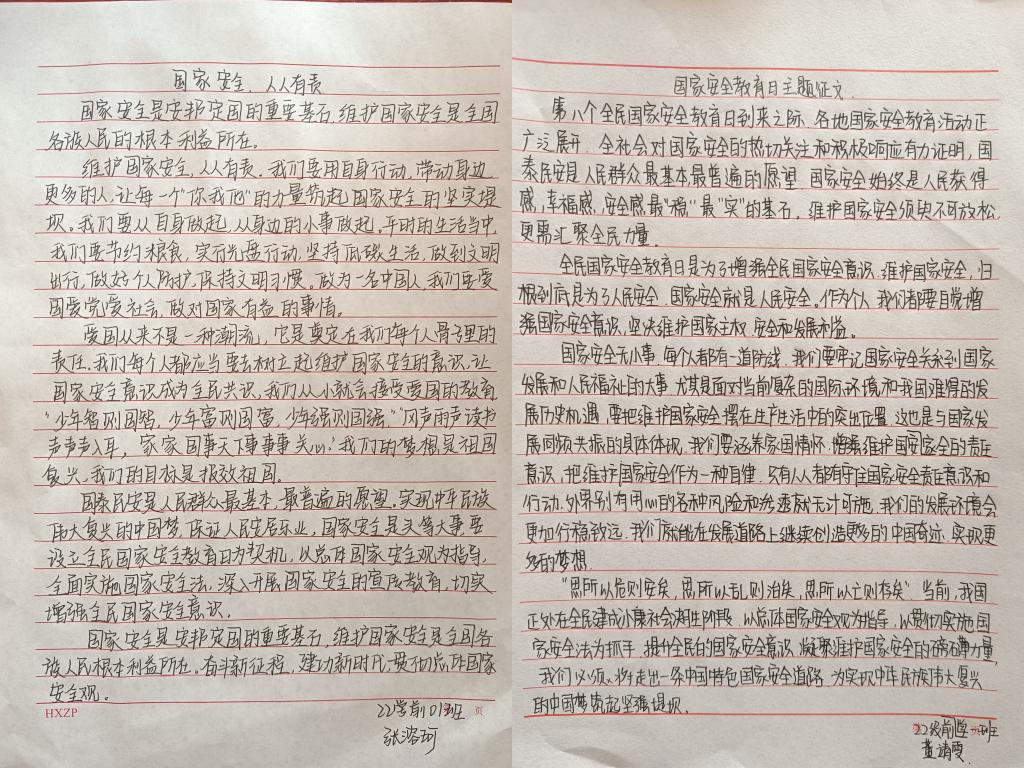 国家安全,人人有责
国家安全是安邦定国的重要基石,维护国家安全是全国
各族人民的根本利益所在。
维护国家安全,人人有责。我们要用自身行动,带动身边
更多的人,让每一个“你我他”的力量筑起国家安全的坚实堤
坝。我们要从自身做起,从身边的小事做起,平时的生活当中,
我们要节约粮食,实行光盘行动,坚持低碳生活,做到文明
出行,做好个人防护,保持文明习惯。做为一名中国人,我们要爱
国爱党爱社会,做对国家有益的事情。
爱国从来不是一种潮流,它是奠定在我们每个人骨子里的
责任。我们每个人都应当要去树立起维护国家安全的意识,让
国家安全意识成为全民共识。我们从小就会接受爱国的教育,
“少年智则国智,少年富则国富,少年强则国强,”“风声雨声读书
声声声入耳,家家国事天下事事事关心”我们的梦想是祖国
复兴。我们的目标是报效祖国。
国泰民安是人民群众最基本,最普遍的愿望。实现中华民族
伟大复兴的中国梦,保证人民安居乐业,国家安全是头等大事,要
设立全民国家安全教育日为契机,以总体国家安全观为指导,
全面实施国家安全法,深入开展国家安全的宣传教育,切实
增强全民国家安全意识。
国家安全是安邦定国的重要基石,维护国家安全是全国各
族人民根本利益所在。奋斗新征程,建功新时代,要切总体国家
安全观。
HXZP
页
22学前01班
张溶珂
国家安全教育日主题征文
第八个全民国家安全教育日到来之际,各地国家安全教育活动正
广泛展开,全社会对国家安全的热切关注和积极响应有力证明,国
泰民安是人民群众最基本最普遍的愿望。国家安全始终是人民获得
感,幸福感,安全感最“稳”最“实”的基石,维护国家安全须臾不可放松,
更需汇聚全民力量。
全民国家安全教育日是为了增强全民国家安全意识,维护国家安全,归
根到底是为了人民安全,国家安全就是人民安全。作为个人,我们都要自觉增
强国家安全意识,坚决维护国家主权,安全和发展利益。
国家安全无小事,每个人都有一道防线,我们要牢记国家安全关系到国家
发展和人民福祉的大事,尤其是面对当前复杂的国际环境和我国难得的发
展历史机遇,要把维护国家安全摆在生产生活中的突出位置,这也是与国家发
展同频共振的具体体现,我们要涵养家国情怀,增强维护国家安全的责任
意识,把维护国家安全作为一种自律,只有人人都有守住国家安全责任意识和
行动,外界别有用心的各种风险和渗透就无计可施,我们的发展环境会
更加行稳致远,我们就能在发展道路上继续创造更多的中国奇迹,实现更
多的梦想
“思所以危则安矣,思所以乱则治矣,思所以亡则存矣”当前,我国
正处在全民建成小康社会決胜阶段,以总体国家安全观为指导,以贯彻实施国
家安全法为抓手,提升全民的国家安全意识,凝聚维护国家安全的磅礴力量,
我们必须、将走出一条中国特色国家安全道路,为实现中华民族伟大复兴
的中国梦筑起坚强堤坝。
22级前学一班
董靖雯